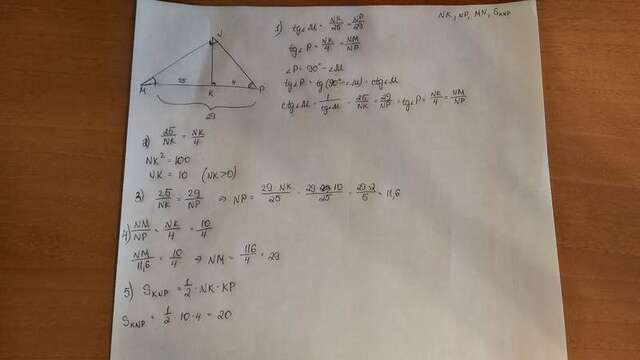 NK, NP, MN, S_KNP
N
M
25
K
4
P
29
1) tg∠M = NK/25 = NP/29
tg∠P = NK/4 = NM/NP
∠P = 90° - ∠M
tg∠P = tg(90° - ∠M) = ctg∠M
ctg∠M = 1/tg∠M = 25/NK = 29/NP = tg∠P = NK/4 = NM/NP
2) 25/NK = NK/4
NK² = 100
NK = 10 (NK>0)
3) 25/NK = 29/NP ⇒ NP = 29·NK/25 = 29·10/25 = 29·2/5 = 11,6
4) NM/NP = NK/4 = 10/4
NM/11,6 = 10/4 ⇒ NM = 116/4 = 29
5) S_KNP = 1/2 · NK · KP
S_KNP = 1/2 · 10 · 4 = 20